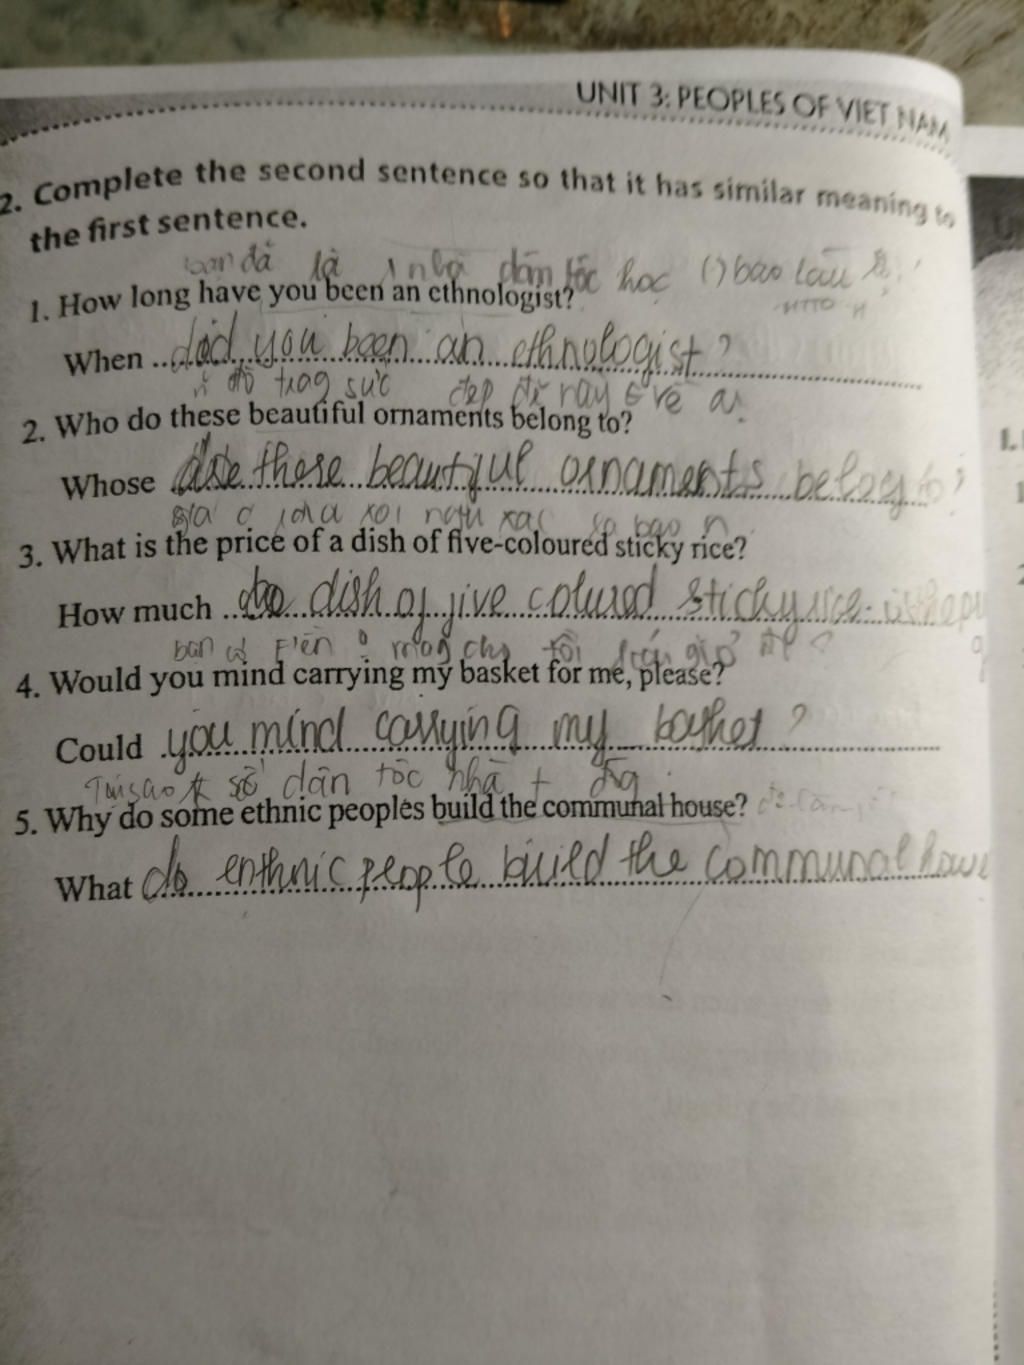 UNIT 3: PEOPLES OF VIET NAM
2. Complete the second sentence so that it has similar meaning to
the first sentence.
bạn đã là 1 nhà dân tộc học () bao lâu
1. How long have you been an ethnologist?
When did you been an ethnologist?
đồ trag sức đẹp đẽ này
2. Who do these beautiful ornaments belong to?
Whose these beautiful ornaments belog to?
3. What is the price of a dish of five-coloured sticky rice?
How much dish of five colured sticky rice is the
bạn có mag cho tôi
4. Would you mind carrying my basket for me, please?
Could you mind carrying my basket?
số dân tộc nhà
5. Why do some ethnic peoples build the communal house?
What do enthnic people build the communal